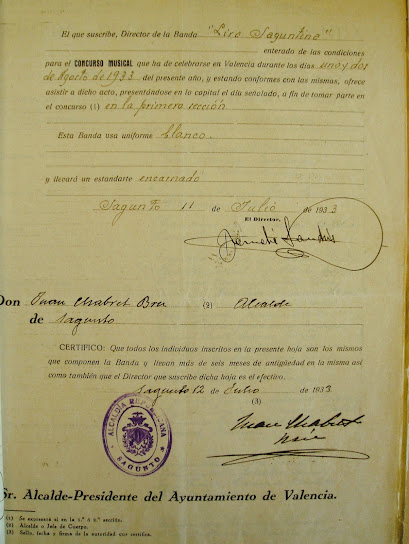 El que suscribe, Director de la Banda "Lira Saguntina"
enterado de las condiciones
para el CONCURSO MUSICAL que ha de celebrarse en Valencia durante los días uno y dos
de Agosto de 1933 del presente año, y estando conformes con las mismas, ofrece
asistir a dicho acto, presentándose en la capital el día señalado, a fin de tomar parte en
el concurso (1) en la primera sección
Esta Banda usa uniforme blanco.
y llevará un estandarte encarnado
Sagunto 11 de Julio de 1933
El Director,
Don Juan Chabret Bru (2) Alcalde
de Sagunto
CERTIFICO: Que todos los individuos inscritos en la presente hoja son los mismos
que componen la Banda y llevan más de seis meses de antigüedad en la misma así
como también que el Director que suscribe dicha hoja es el efectivo.
Sagunto 12 de Julio de 1933
(3)
Juan Chabret
ALCALDÍA REPUBLICANA
SAGUNTO
Sr. Alcalde-Presidente del Ayuntamiento de Valencia.
(1) Se expresará si en la 1.ª ó 2.ª sección.
(2) Alcalde o Jefe de Cuerpo.
(3) Sello, fecha y firma de la autoridad que certifica.